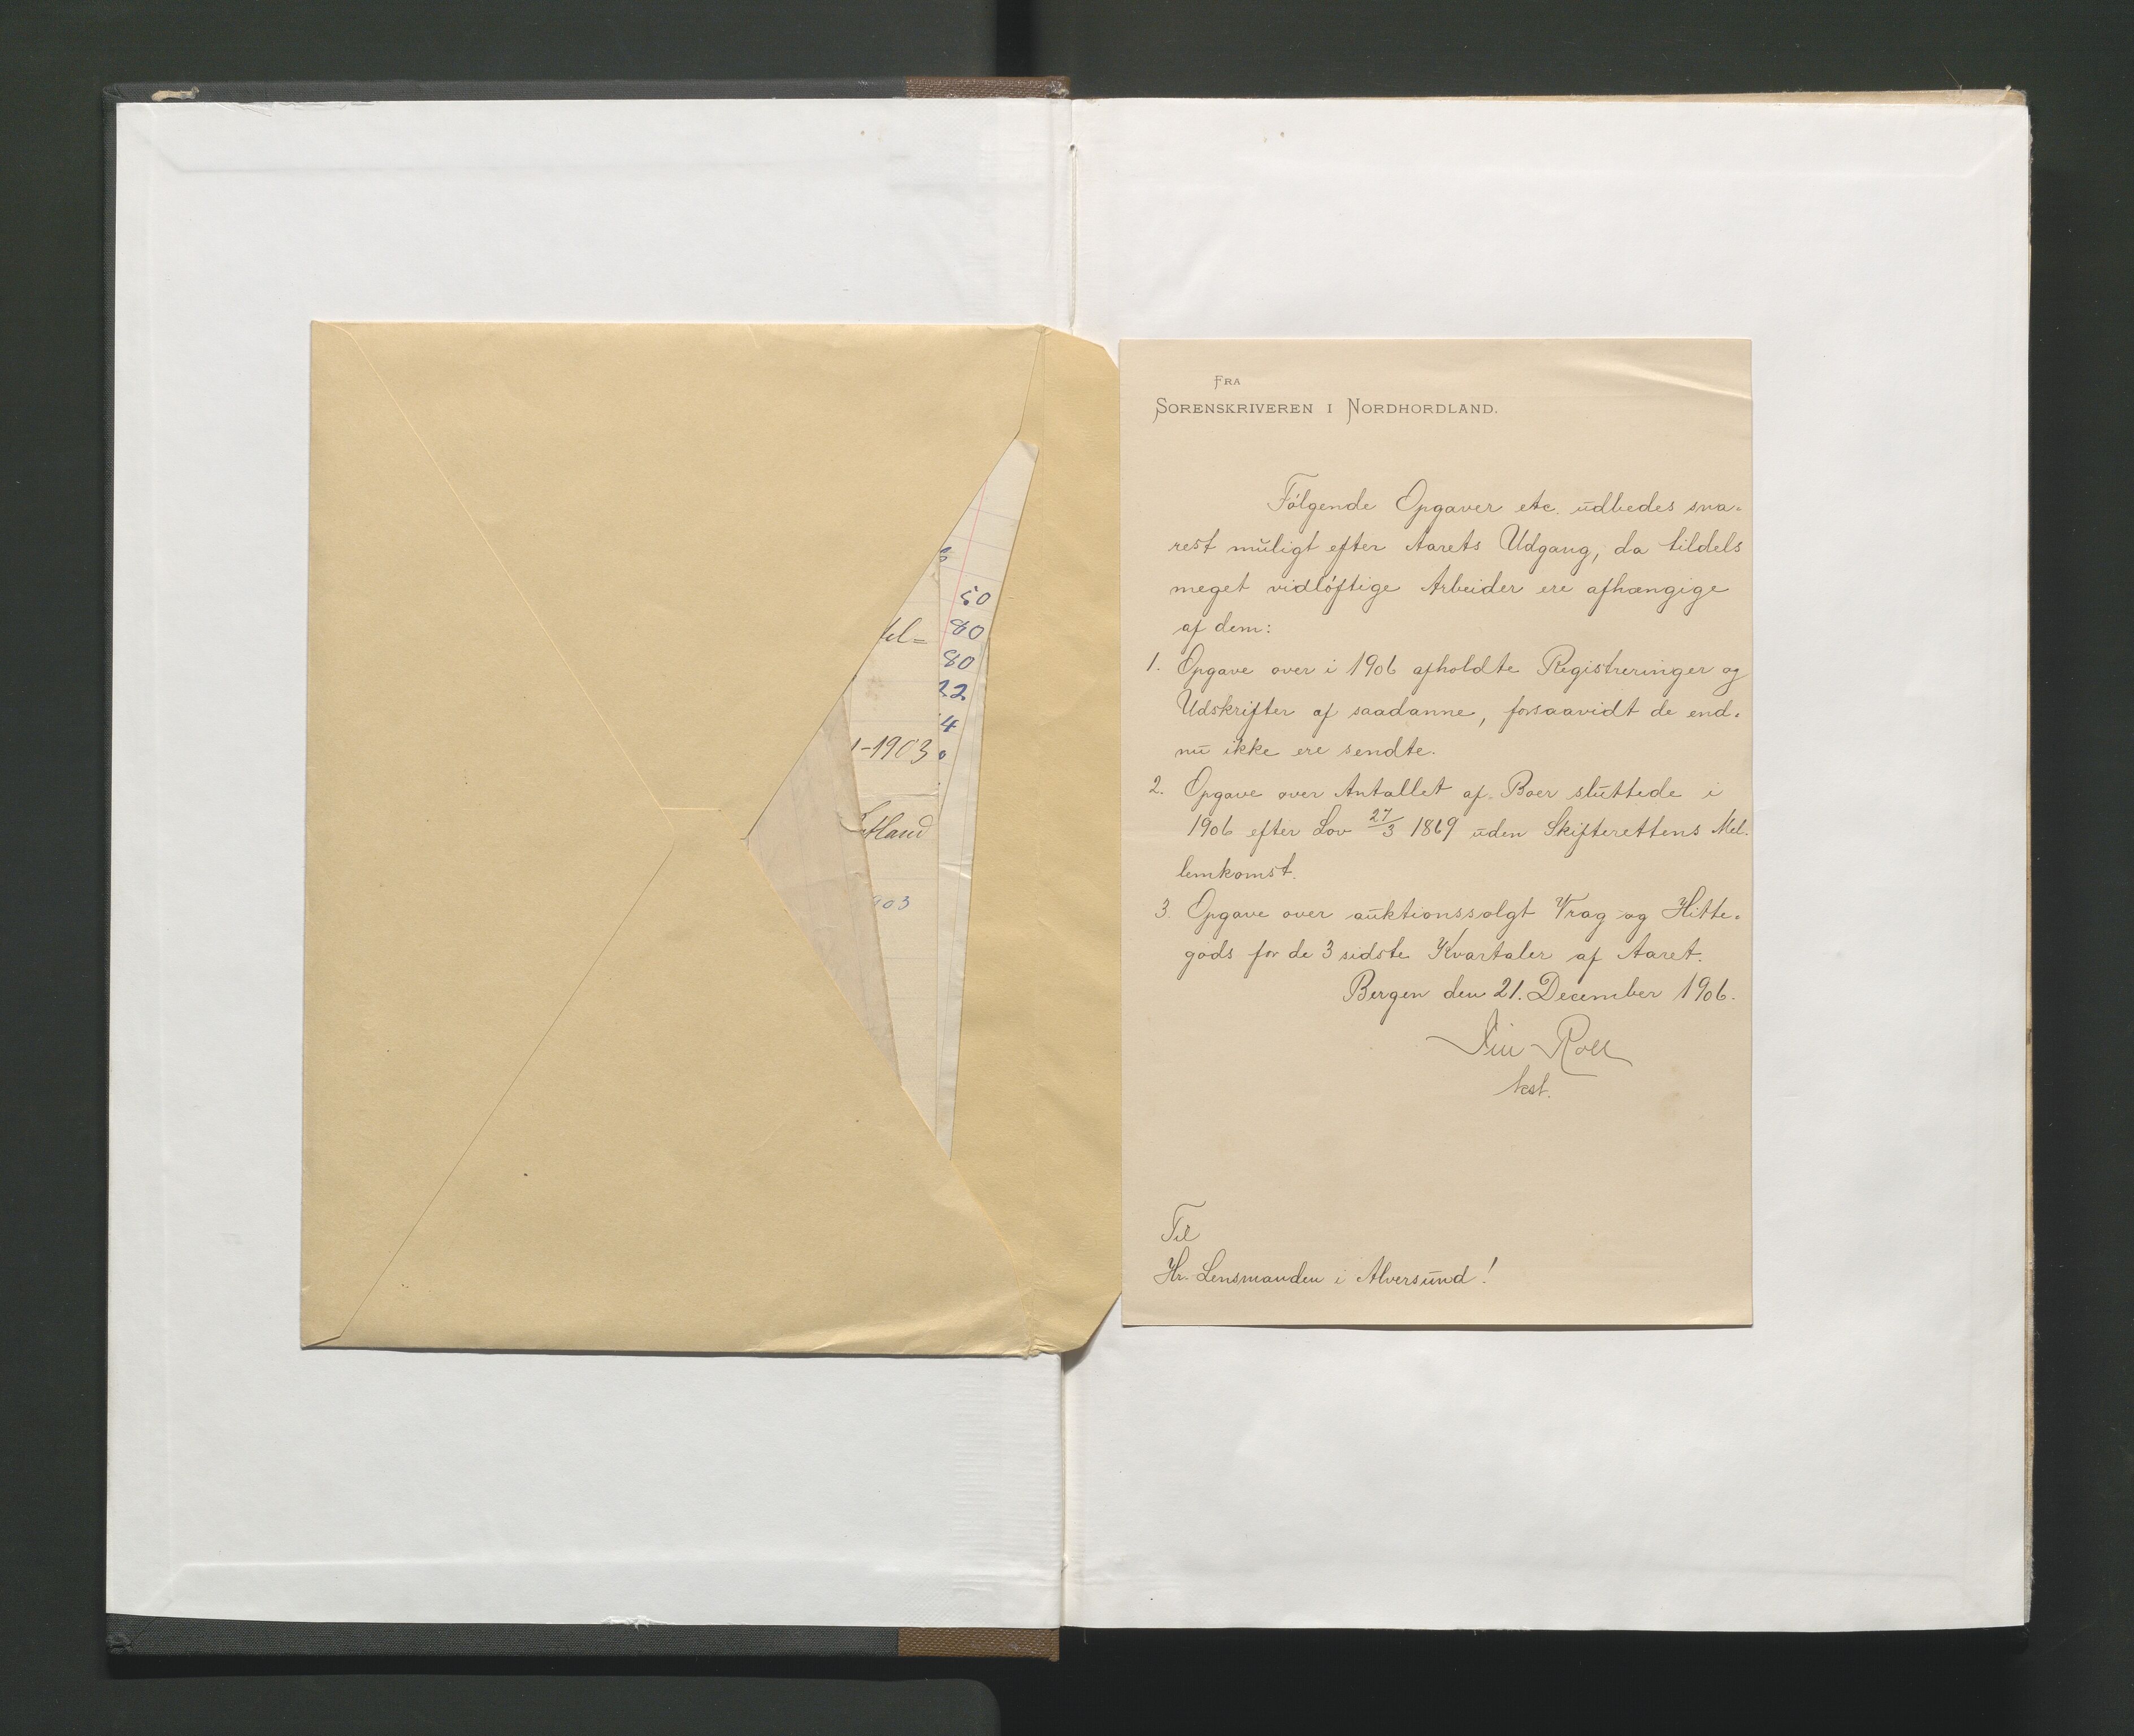 50
tel=
80
80
22
4
1-1903
land
903
FRA
SORENSKRIVEREN I NORDHORDLAND.
Følgende Opgaver etc. udbedes sna-
rest muligt efter Aarets Udgang, da tildels
meget vidløftige Arbeider ere afhængige
af dem:
1. Opgave over i 1906 afholdte Registreringer og
Udskrifter af saadanne, forsaavidt de end-
nu ikke ere sendte.
2. Opgave over Antallet af Boer sluttede i
1906 efter Lov 27/3 1869 uden Skifterettens Mel-
lemkomst.
3. Opgave over auktionssolgt Vrag og Hitte-
gods for de 3 sidste Kvartaler af Aaret.
Bergen den 21. December 1906.
Roll
kst.
Til
Hr. Lensmanden i Alversund!